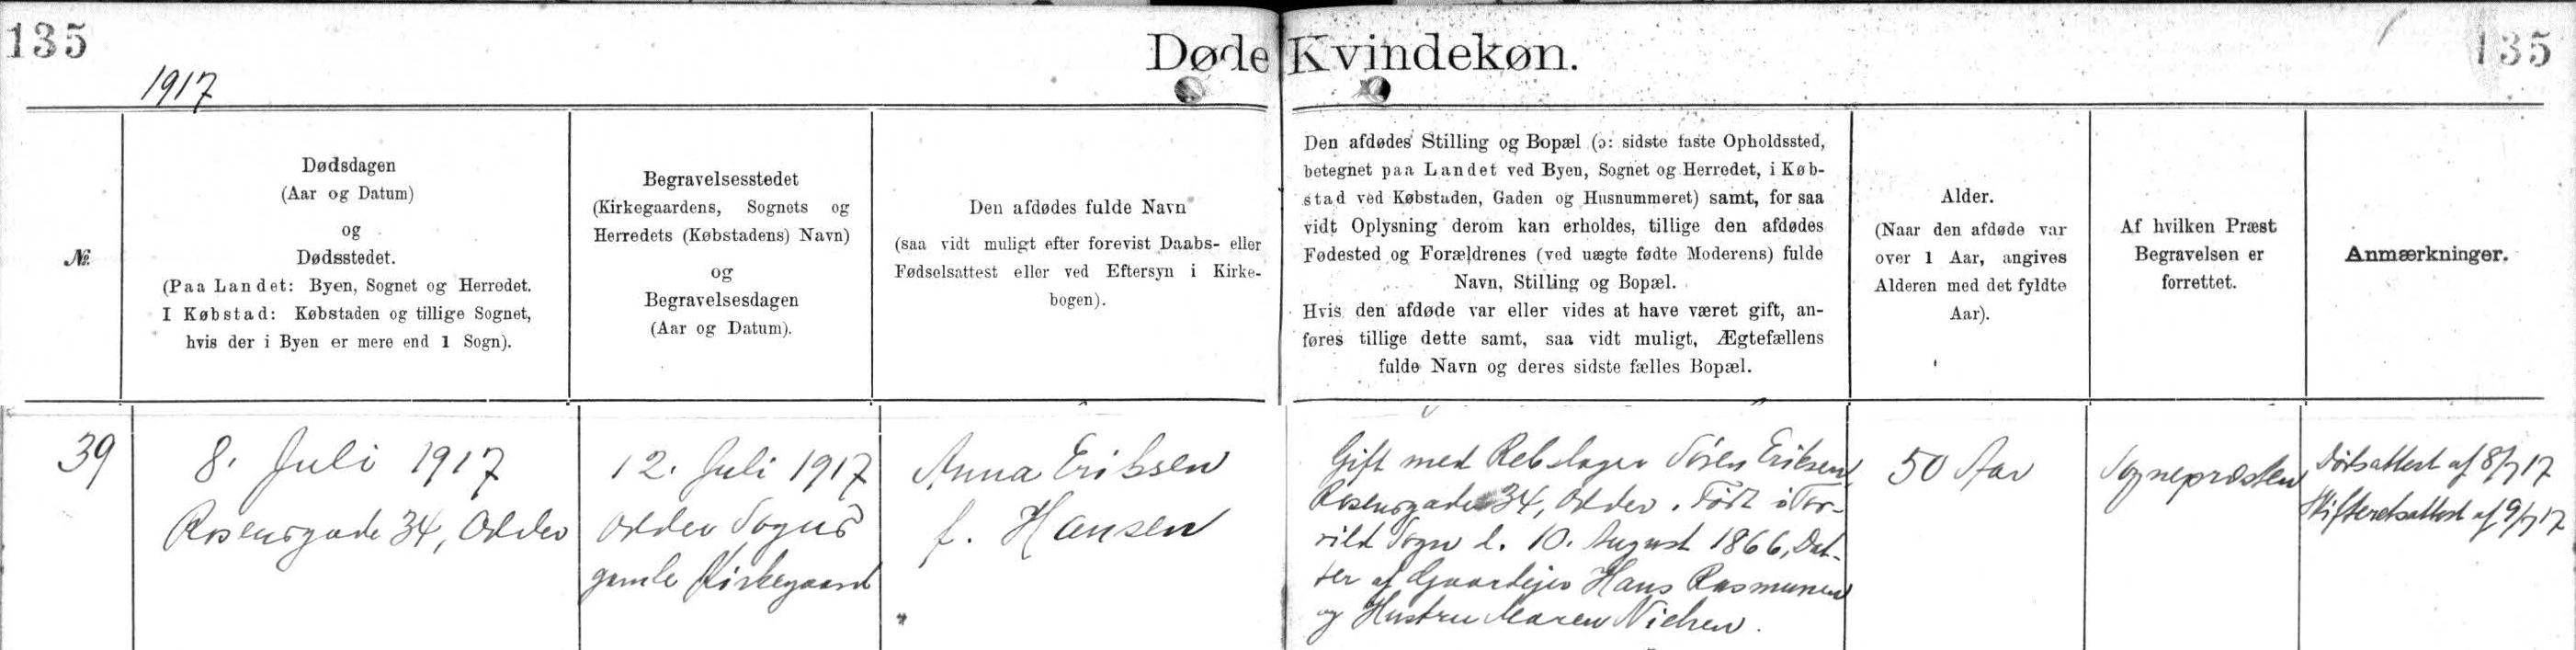 135
Døde Kvindekøn.
135
1917
№
Dødsdagen
(Aar og Datum)
og
Dødsstedet.
(Paa Landet: Byen, Sognet og Herredet.
I Købstad: Købstaden og tillige Sognet,
hvis der i Byen er mere end 1 Sogn).
Begravelsesstedet
(Kirkegaardens, Sognets og
Herredets (Købstadens) Navn)
og
Begravelsesdagen
(Aar og Datum).
Den afdødes fulde Navn
(saa vidt muligt efter forevist Daabs- eller
Fødselsattest eller ved Eftersyn i Kirke-
bogen).
Den afdødes Stilling og Bopæl (ɔ: sidste faste Opholdssted,
betegnet paa Landet ved Byen, Sognet og Herredet, i Køb-
stad ved Købstaden, Gaden og Husnummeret) samt, for saa
vidt Oplysning derom kan erholdes, tillige den afdødes
Fødested og Forældrenes (ved uægte fødte Moderens) fulde
Navn, Stilling og Bopæl.
Hvis den afdøde var eller vides at have været gift, an-
føres tillige dette samt, saa vidt muligt, Ægtefællens
fulde Navn og deres sidste fælles Bopæl.
Alder.
(Naar den afdøde var
over 1 Aar, angives
Alderen med det fyldte
Aar).
Af hvilken Præst
Begravelsen er
forrettet.
Anmærkninger.
39
8. Juli 1917
Rosensgade 34, Odder
12. Juli 1917
Odder Sogns
gamle Kirkegaard
Anna Eriksen
f. Hansen
Gift med Rebslager Søren Eriksen,
Rosensgade 34, Odder. Født i Tor-
rild Sogn d. 10. August 1866, Dat-
ter af Gaardejer Hans Rasmussen
og Hustru Maren Nielsen.
50 Aar
Sognepræsten
Dødsattest af 8/7 17
Skifteretsattest af 9/7 17